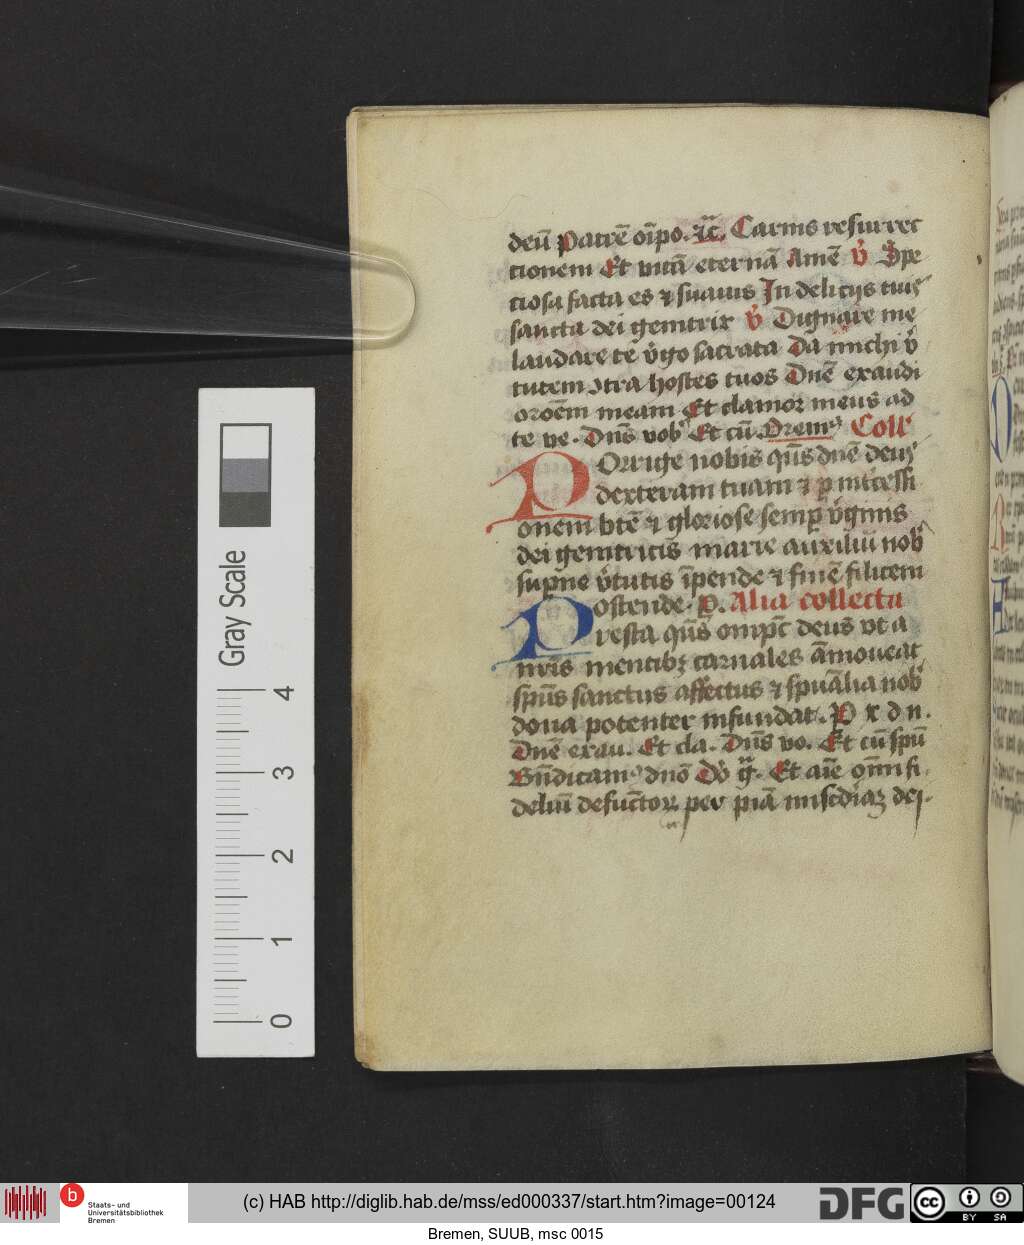 deū Patrē oīpo. ⁊c̄. Carnis resurrec
tionem Et vitā eternā Amē v̄ Spe
ciosa facta es ⁊ suauis In delicijs tuis
sancta dei genitrix v̄ Dignare me
laudare te v̊go sacrata Da michi v̊
tutem ꝯtra hostes tuos Dn̄e exaudi
oroēm meam Et clamor meus ad
te ve. Dn̄s vob Et cū Orem⁹ Coll'
Porrige nobis qn̄s dn̄e deus
dexteram tuam ⁊ p intc̄essi
onem btē ⁊ gloriose semp v̊ginis
dei genitricis marie auxiliū nob
sup̄ne v̊tutis īpende ⁊ finē filicem
ostende. P. Alia collecta
Presta qn̄s omp̄c deus vt a
nr̄is mentibꝫ carnales āmoueat
sp̄us sanctus affectus ⁊ spūalia nob
dona potenter infundat. P x d n.
Dn̄e exau. Et cla. Dn̄s vo. Et cū spū
Bn̄dicam⁹ dn̄o Dō g̃. Et aīe om̄i fi
deliū defūctoꝝ per piā miscd̄iaꝫ dei.
Gray Scale
4
3
2
1
0
b Staats- und
Universitätsbibliothek
Bremen
(c) HAB http://diglib.hab.de/mss/ed000337/start.htm?image=00124
DFG
cc BY SA
Bremen, SUUB, msc 0015